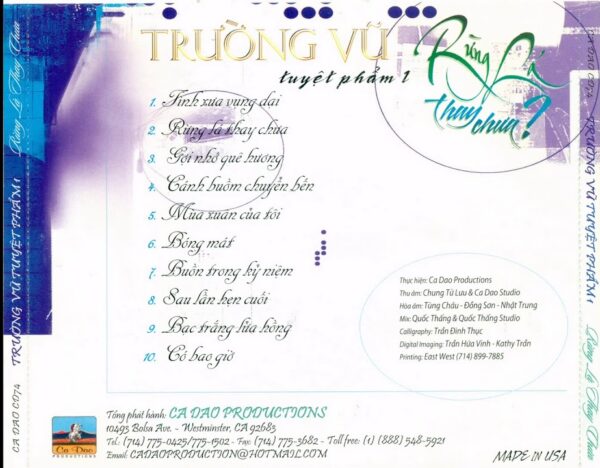 TRƯỜNG VŨ
tuyệt phẩm 1
Rừng Lá
thay chưa?
1. Tình xưa vụng dại
2. Rừng lá thay chưa
3. Gợi nhớ quê hương
4. Cánh buồm chuyển bến
5. Mùa xuân của tôi
6. Bóng mát
7. Buồn trong kỷ niệm
8. Sau lần hẹn cuối
9. Bạc trắng lửa hồng
10. Có bao giờ
Thực hiện: Ca Dao Productions
Thu âm: Chung Tử Lưu & Ca Dao Studio
Hòa âm: Tùng Châu - Đồng Sơn - Nhật Trung
Mix: Quốc Thắng & Quốc Thắng Studio
Calligraphy: Trần Đình Thục
Digital Imaging: Trần Hứa Vinh - Kathy Trần
Printing: East West (714) 899-7885
Tổng phát hành: CA DAO PRODUCTIONS
10493 Bolsa Ave. - Westminster, CA 92683
Tel.: (714) 775-0425/775-1502 - Fax: (714) 775-3682 - Toll free: (1) (888) 548-5921
Email: CADAOPRODUCTION@HOTMAIL.COM
Ca Dao
PRODUCTIONS
MADE IN USA
CA DAO CD74 TRƯỜNG VŨ TUYỆT PHẨM 1 Rừng Lá Thay Chưa
CA DAO CD74 TRƯỜNG VŨ TUYỆT PHẨM 1 Rừng Lá Thay Chưa